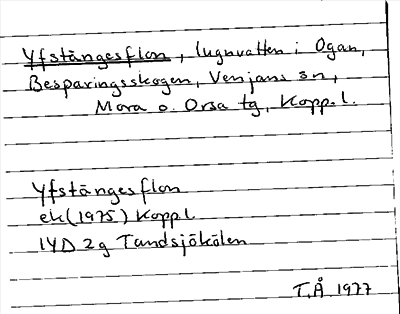 Yfstängesflon, lugnvatten i Ogan,
Besparingsskogen, Venjans sn,
Mora o. Orsa tg, Kopp. l.
Yfstängesflon
ek (1975) Kopp l
14D 2g Tandsjökölen
T.Å 1977